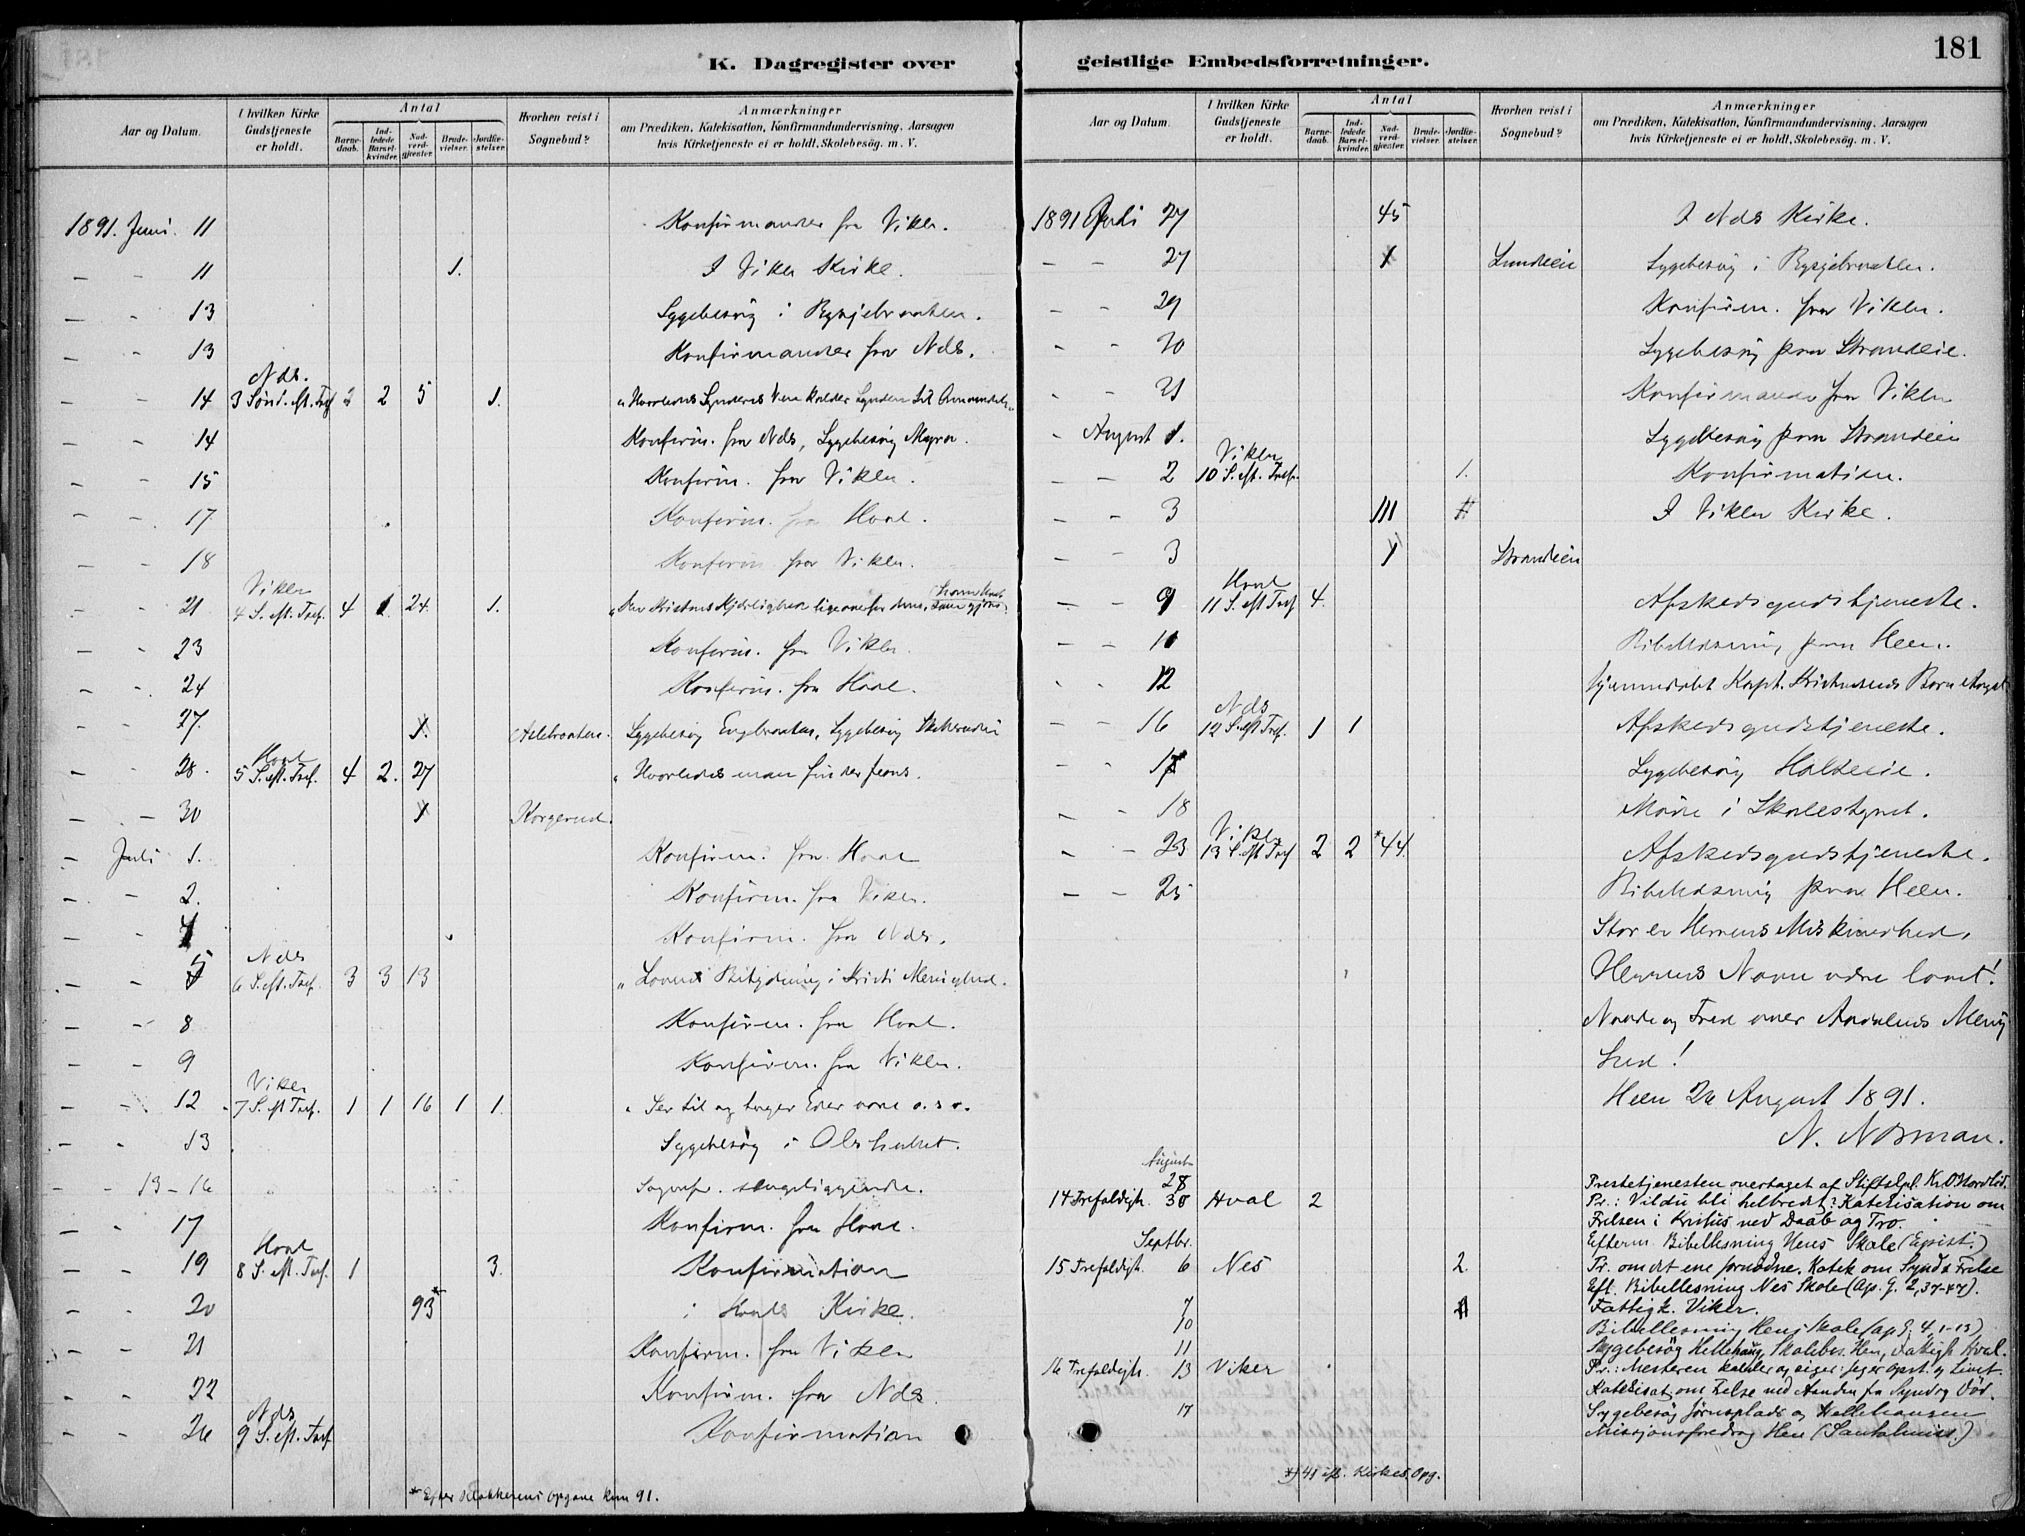 181
K. Dagregister over geistlige Embedsforretninger.
Aar og Datum.
I hvilken Kirke Gudstjeneste er holdt.
Antal
Barnedaab.
Indledede Barselkvinder.
Nadverdgjester.
Brudevielser.
Jordfæstelser.
Hvorhen reist i Sognebud?
Anmærkninger
om Prædiken, Katekisation, Konfirmandundervisning, Aarsagen
hvis Kirketjeneste ei er holdt, Skolebesög. m. V.
1891. Juni. 11 Konfirmander fra Viker.
— - 11 1. I Viker Kirke.
— - 13 Sygebesøg i
— - 13 Konfirmander fra Nds.
Nds.
— - 14 3 Sønd. eft. Tref 2 2 5 1.
- - 14 Konfirm. fra Nds, Sygebesøg Myra.
- - 15 Konfirm. fra Viker.
- - 17. Konfirm. fra Hval.
- - 18 Konfirm fra Viker.
Viker
- - 21 4 S. eft. Tref. 4 1. 24. 1.
- - 23 Konfirm. fra Viker.
- - 24 Konfirm. fra Hval.
- - 27. 1. Sygebesøg Sygebesøg
Hval
- - 28. 5 S. eft. Tref. 4 2. 27 Hvorledes man finder Jesus.
- - 30 1 Korgerud.
- Juli 1. Konfirm. fra Hval
- - 2. Konfirm. fra Viker.
- - 4 Konfirm. fra Nds.
Nds
- - 5 6 S. eft. Tref. 3 3 13 „Lovens Betydning i Kristi Menighed.
- - 8 Konfirm. fra Hval.
- - 9 Konfirm. fra Viker.
Viker
- - 12 7 S. eft Tref. 1 1 16 1 1. Ser til og tager Eder vare o. s. v.
— - 13 Sygebesøg i
- - 13-16
- - 17 Konfirm. fra Hval.
Hval
- - 19 8 S. eft. Tref. 1 3. Konfirmation
- - 20 93* i Hvals Kirke.
- - 21 Konfirm. fra Viker
- - 22 Konfirm. fra Nds.
Nds
- - 26 9 S. eft. Tref Konfirmation
* Efter Klokkerens Opgave kun 91.
Aar og Datum.
I hvilken Kirke Gudstjeneste er holdt.
Antal
Barnedaab.
Indledede Barselkvinder.
Nadverdgjester.
Brudevielser.
Jordfæstelser.
Hvorhen reist i Sognebud?
Anmærkninger
om Prædiken, Katekisation, Konfirmandundervisning, Aarsagen
hvis Kirketjeneste ei er holdt, Skolebesög. m. V.
1891 Juli 27 45 I Nds Kirke.
— - 27 1 Sygebesøg i
— - 29 Konfirm. fra Viker.
- - 30 Sygebesøg paa Strandeie.
- - 31 Konfirmander fra Viker
- August 1. Sygebesøg paa Strandeie
Viker
— - 2 10 S. eft. Tref. 1. Konfirmation.
— - 3 I Viker Kirke.
— - 3 1 Strandeien
Hval
— - 9 11 S. eft Tref 4. Afskedsgudstjeneste.
— - 10 Bibellæsning paa Heen.
- - 12
Nds
— - 16 12 S. eft Tref. 1 1 Afskedsgudstjeneste.
- - 17 Sygebesøg
- - 18 Møde i Skolestyret.
Viker
- - 23 13 S. eft Tref 2 2 *44. Afskedsgudstjeneste.
— - 25 Bibellæsning paa Heen.
Stor er Herrens Miskundhed.
Herrens Navn være lovet!
Naade og Fred over Aadalens Menig
hed!
Heen 26 August 1891.
N. Norman.
August
28 Prestetjenesten overtaget af Stiftskpl.
14 Trefoldigh. 30 Hval 2 Pr.: Vil du bli helbredet? Katekisation om
Frelsen i Kristus ved Daab og Tro.
Efterm. Bibellesning Hens Skole (Epist.)
Septbr.
15 Trefoldigh. 6 Nes 2. Pr. om det ene fornødne. Katek om Synd & Frelse
Eft. Bibellesning Nes Skole (Ap. G. 2,37-47).
7 Fattigk. Viker.
10 Bibellesning Hens Skole (ap G. 4,1-13)
11 Sygebesøg Hellehaug, Skolebes. Hen, Fattigk Hval.
16 Trefoldigh. 13 Viker Pr.: Mesteren kalder og siger: Jeg er Opst. og Livet.
Katekisat. om Frelse ved Aanden fra Synd og Død.
17 Sygebesøg Jørnsplads og Hellehaugen
Missjonsforedrag Hen (Santalmiss.)
*) 41 ifl. Kirkes. Opg.